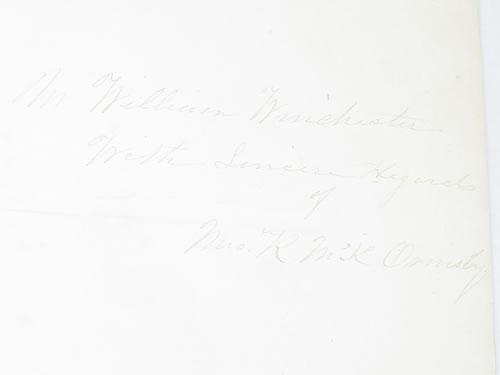 Mr William Winchester
With Sincere Regards
of
Mrs. K McK Ormsby